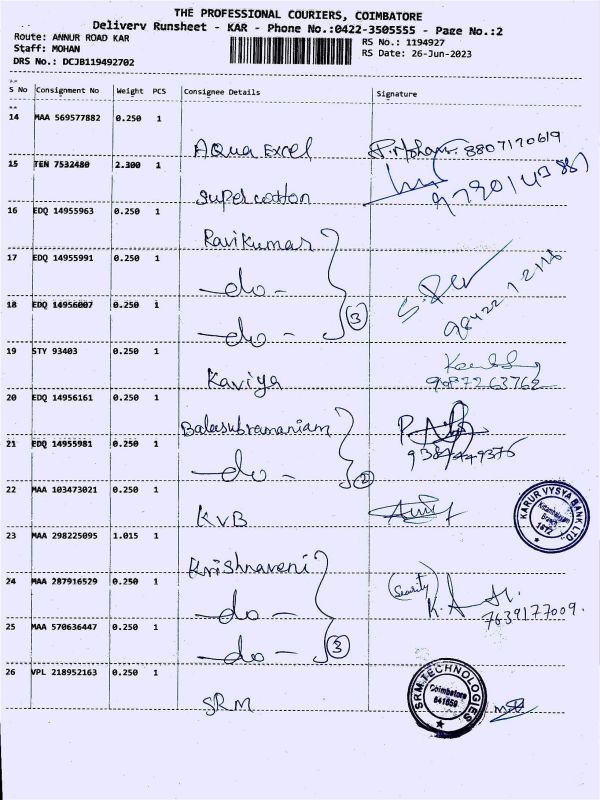 THE PROFESSIONAL COURIERS, COIMBATORE
Delivery Runsheet - KAR - Phone No.:0422-3505555 - Page No.:2
Route: ANNUR ROAD KAR
RS No.: 1194927
Staff: MOHAN
RS Date: 26-Jun-2023
DRS No.: DCJB119492702
S No Consignment No Weight PCS Consignee Details Signature
14 MAA 569577882 0.250 1
Aqua Excel 8807170619
15 TEN 7532480 2.300 1
Super cotton
16 EDQ 14955963 0.250 1
Ravikumar
17 EDQ 14955991 0.250 1
-do-
18 EDQ 14956007 0.250 1
-do- 3
19 STY 93403 0.250 1
Kaviya 9087263762
20 EDQ 14956161 0.250 1
Balasubramaniam
21 EDQ 14955981 0.250 1
-do- 2
22 MAA 103473021 0.250 1
KVB
KARUR VYSYA BANK LTD.
Branch
1872
23 MAA 298225095 1.015 1
Krishnaveni
24 MAA 287916529 0.250 1
(Security)
-do- 7639177009.
25 MAA 570636447 0.250 1
-do- 3
26 VPL 218952163 0.250 1
SRM
SRM TECHNOLOGIES
Coimbatore
641659